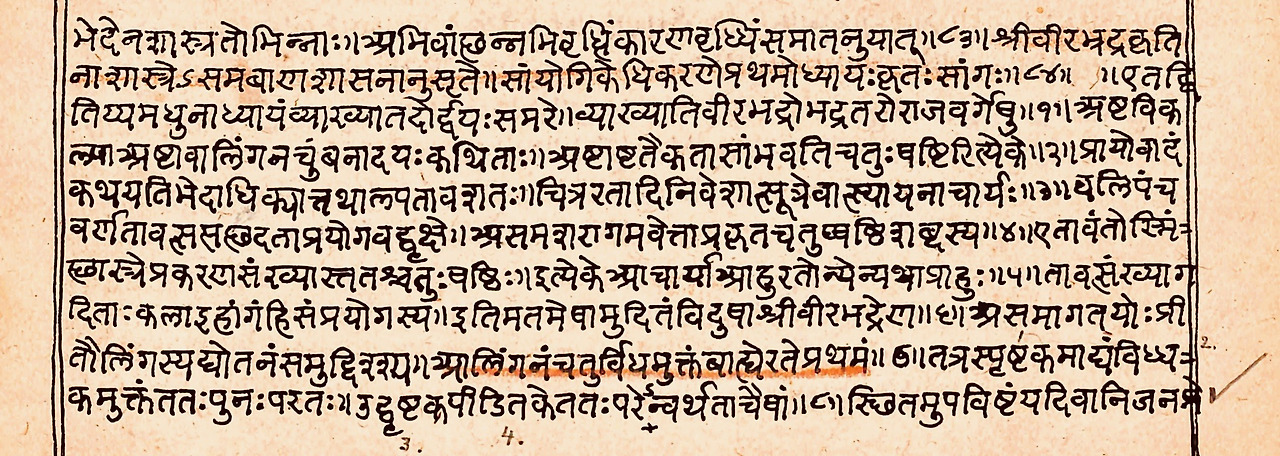 भेदेन शास्त्रतो भिन्नाः॥ अभिवांछन्नभिवृध्धिं कारणवृध्धिं समातनुयात्॥८३॥ श्रीवीरभद्रकृति
ना शास्त्रेऽसमबाणशासनानुसृते॥ सांयोगिकेधिकरणे प्रथमोध्यायः कृतः सांगः॥८४॥ ॥एतद्वि
तिय्यमधुनाध्यायं व्याख्यातदोर्द्वयः समरे॥ व्याख्याति वीरभद्रो भद्रतरो राजवर्गेषु॥१॥ अष्टविक
ल्पा अष्टावालिंगनचुंबनादयः कथिताः॥ अष्टाष्टतैकतासां भवति चतुःषष्टिरित्येके॥२॥ प्रायोवादं
कथयति भेदाधिक्यात्तथाल्पतावशतः॥ चित्ररतादिनिवेशात्सूत्रे वात्स्यायनाचार्यः॥३॥ बलिपंच
वर्णतावत्सप्तछदताप्रयोगवद्वृक्षे॥ असमशरागमवेत्ता प्रकृतचतुष्षष्ठिशब्दस्य॥४॥ एतावंतोस्मिं-
छास्त्रे प्रकरणसंख्यास्ततश्चतुःषष्ठिः॥ इत्येके आचार्या आहुरतोन्येन्यथा प्राहुः॥५॥ तावत्संख्या ग
दिताः कला इहांगं हि संप्रयोगस्य॥ इति मतमेषामुदितं विदुषा श्रीवीरभद्रेण॥६॥ असमागतयोः प्री
तौ लिंगस्य द्योतनं समुद्दिश्य॥ आलिंगनं चतुर्विधमुक्तं बाह्ये रते प्रथमं॥७॥ तत्र स्पृष्टकमाद्यं विध्ध- 2.
कमुक्तं ततः पुनः परतः॥ उद्घृष्टकपीडितके ततः परेन्वर्थता चैषां॥८॥ स्छितमुपविष्टं यदि वा निजनर्भे
3. 4.